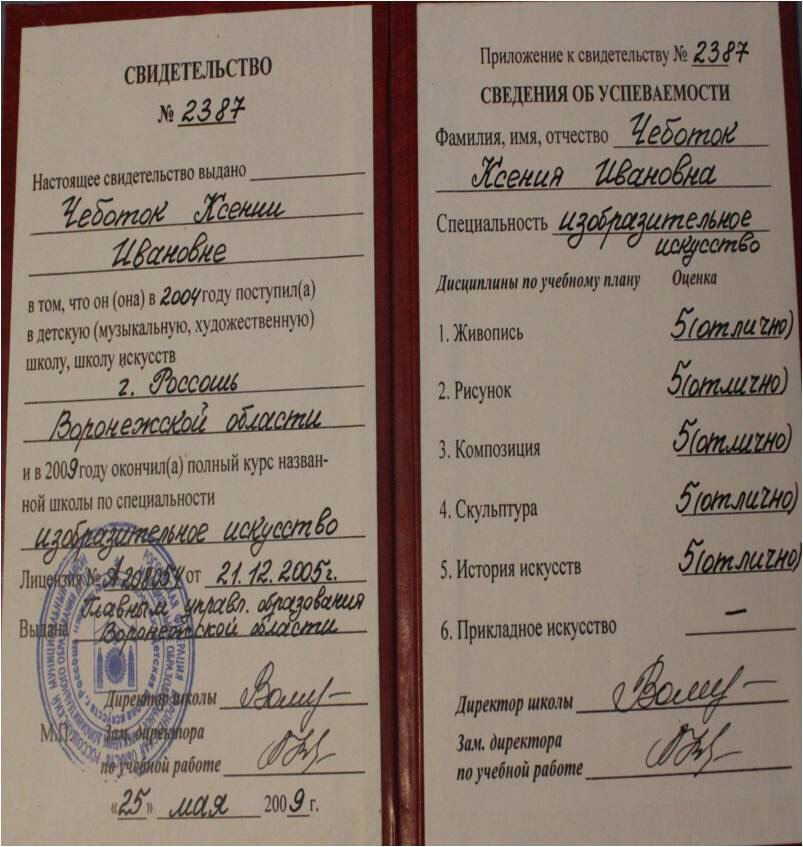 СВИДЕТЕЛЬСТВО
№ 2387
Настоящее свидетельство выдано
Чеботок Ксении
Ивановне
в том, что он (она) в 2004 году поступил(а)
в детскую (музыкальную, художественную)
школу, школу искусств
г. Россошь
Воронежской области
и в 2009 году окончил(а) полный курс назван-
ной школы по специальности
изобразительное искусство
Лицензия № А208054 от 21.12.2005г.
Главным управл. образования
Выдана Воронежской области
Директор школы
М.П. Зам. директора
по учебной работе
«25» мая 2009 г.
Приложение к свидетельству № 2387
СВЕДЕНИЯ ОБ УСПЕВАЕМОСТИ
Фамилия, имя, отчество Чеботок
Ксения Ивановна
Специальность изобразительное
искусство
Дисциплины по учебному плану Оценка
1. Живопись 5(отлично)
2. Рисунок 5(отлично)
3. Композиция 5(отлично)
4. Скульптура 5(отлично)
5. История искусств 5(отлично)
6. Прикладное искусство –
Директор школы
Зам. директора
по учебной работе